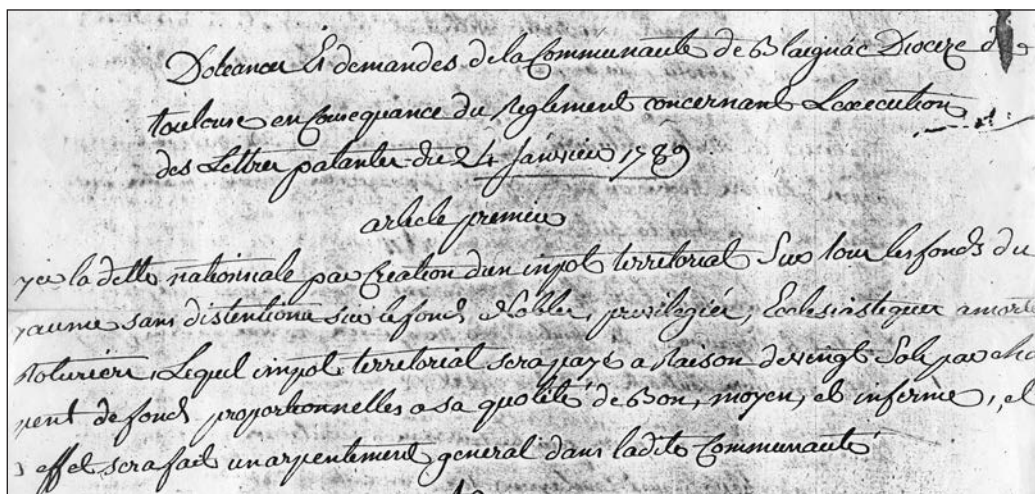 Doleances Et demandes de la Communauté de Blaignac Dioceze de
toulouse en Consequance du Reglement concernant Lexecution
des Lettres patantes du 24 Janvier 1789
article premier
yer la dette nationnale par Creation d'un impot territorial Sur tous les fonds du
yaume sans distentions sur le fonds Nobles, privilegiés, Ecclesiastiques amorti
Roturiers, Lequel impot territorial sera payé a Raison de vingt Sols par cha
pent de fonds proportionnelles a sa quotité de Bon, moyen, et infirme, et
effet sera fait un arpentement general dans ladite Communauté